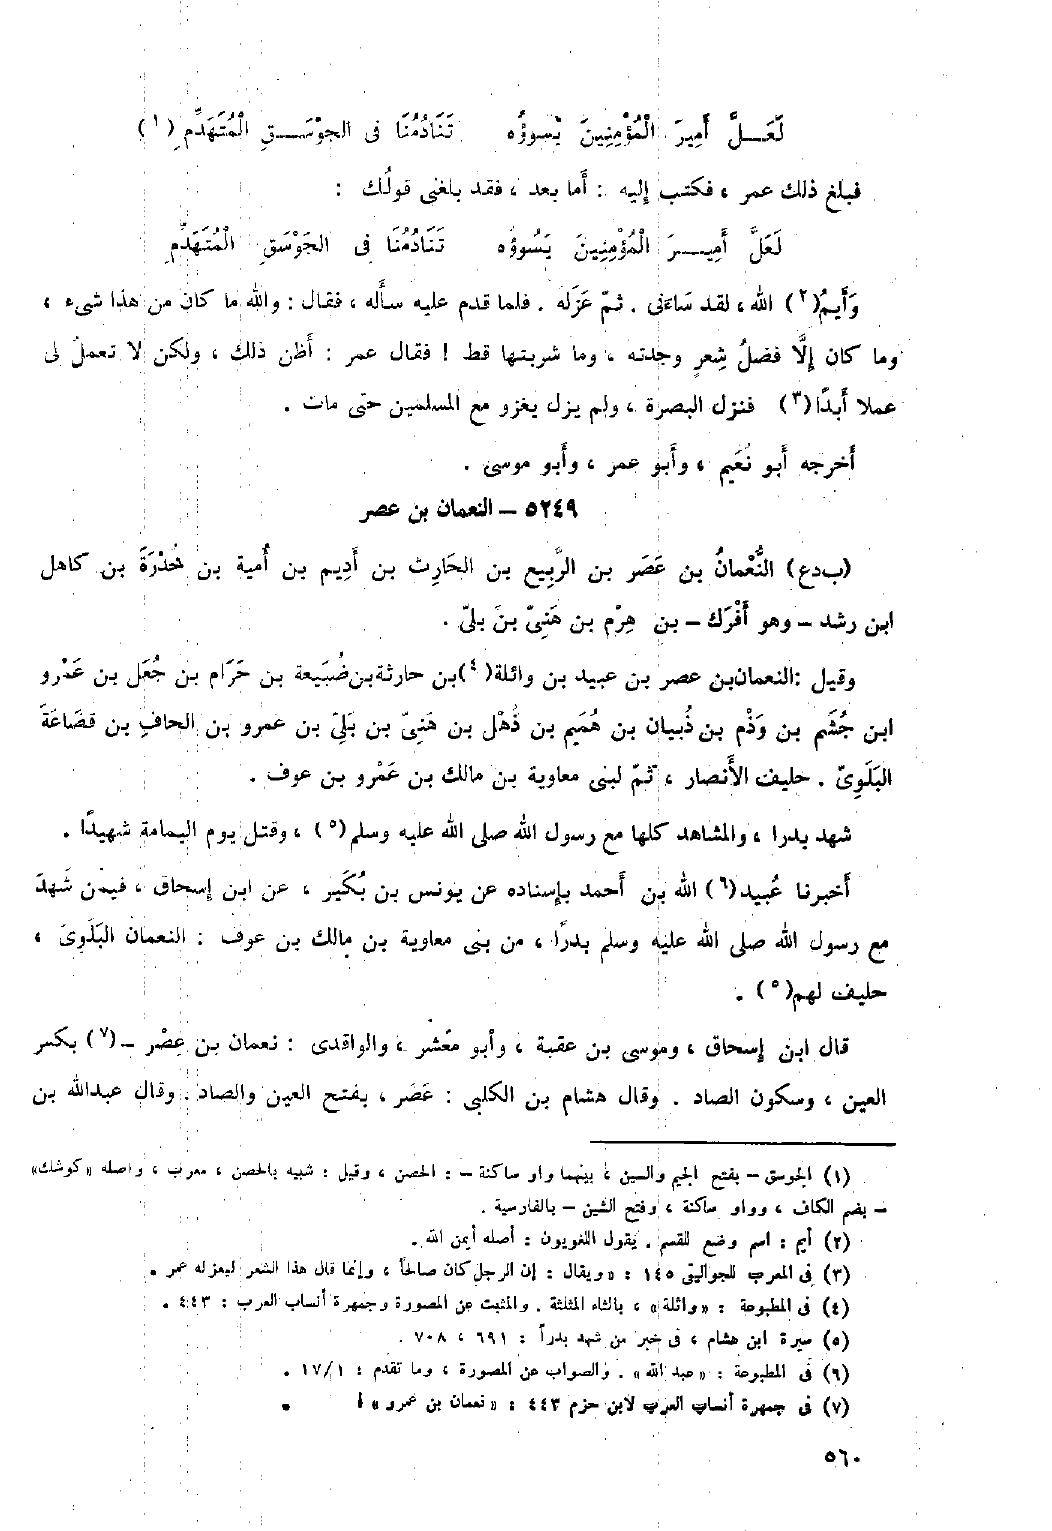 لَعَــلَّ أَمِيرَ الْمُؤْمِنِينَ يَسوؤُه تَنَادُمُنَا فى الجوْسَــقِ الْمُتَهَدِّمِ (١)
فبلغ ذلك عمر ، فكتب إليه : أَما بعد ، فقد بلغنى قولُك :
لَعَلَّ أَمِيــرَ الْمُؤْمِنِينَ يَسُوؤُه تَنَادُمُنَا فى الجَوْسَقِ الْمُتَهَدَّمِ
وَأَيمُ(٢) الله ، لقد سَاءَنى . ثمّ عَزَله . فلما قدم عليه سأَله ، فقال : والله ما كان من هذا شىء ،
وما كان إِلَّا فضلُ شِعرٍ وجدته ، وما شربتها قط ! فقال عمر : أَظن ذلك ، ولكن لا تعملُ لى
عملا أَبدًا(٣) فنزل البصرة ، ولم يزل يغزو مع المسلمين حتى مات .
أَخرجه أَبو نُعَيم ، وأَبو عمر ، وأَبو موسى .
٥٢٤٩ – النعمان بن عصر
(ب د ع) النُّعْمانُ بن عَصَر بن الرَّبِيع بن الحَارِث بن أَدِيم بن أُمية بن خُدْرَةَ بن كاهل
ابن رشد – وهو أَفْرَك – بن هِرْم بن هَنِىّ بنَ بلىّ .
وقيل : النعمان بن عصر بن عبيد بن وائلة(٤) بن حارثة بن ضُبَيعة بن حَرَام بن جُعَل بن عَمْرو
ابن جُشَم بن وَذْم بن ذُبيان بن هُمَيم بن ذُهْل بن هَنِىّ بن بَلِىّ بن عمرو بن الحاف بن قضَاعَةَ
البَلَوِىّ . حليف الأَنصار ، ثمّ لبنى معاوية بن مالك بن عَمْرو بن عوف .
شهد بدرا ، والمشاهد كلها مع رسول الله صلى الله عليه وسلم(٥) ، وقتل يوم اليمامة شهيدًا .
أَخبرنا عُبيد(٦) الله بن أَحمد بإسناده عن يونس بن بُكَير ، عن ابن إِسحاق ، فيمن شَهدَ
مع رسول الله صلى الله عليه وسلم بدرًا ، من بنى معاوية بن مالك بن عوف : النعمان البَلَوىّ ،
حليف لهم(٥) .
قال ابن إِسحاق ، وموسى بن عقبة ، وأَبو مَعْشر ، والواقدى : نعمان بن عِصْر – (٧) بكسر
العين ، وسكون الصاد . وقال هشام بن الكلبى : عَصَر ، بفتح العين والصاد . وقال عبدالله بن
(١) الجوسق – بفتح الجيم والسين ، بينهما واو ساكنة – : الحصن ، وقيل : شبيه بالحصن ، معرب ، وأصله «كوشك»
– بضم الكاف ، وواو ساكنة ، وفتح الشين – بالفارسية .
(٢) أيم : اسم وضع للقسم . يقول اللغويون : أصله أيمن الله .
(٣) فى المعرب للجواليقى ١٤٥ : «ويقال : إن الرجل كان صالحاً ، وإنما قال هذا الشعر ليعزله عمر .
(٤) فى المطبوعة : «واثلة» ، بالثاء المثلثة . والمثبت عن المصورة وجمهرة أنساب العرب : ٤٤٣ .
(٥) سيرة ابن هشام ، فى خبر من شهد بدراً : ٦٩١ ، ٧٠٨ .
(٦) فى المطبوعة : «عبد الله» . والصواب عن المصورة ، وما تقدم : ١٧/١ .
(٧) فى جمهرة أنساب العرب لابن حزم ٤٤٣ : «نعمان بن عمرو» !
٥٦٠